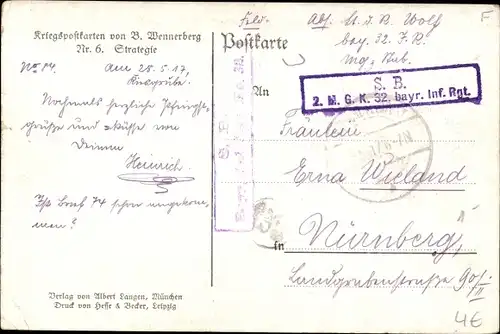 Kriegspostkarten von B. Wennerberg
Nr. 6. Strategie
No 84. Am 25.5.17,
Nochmals herzliche Pfingst-
grüße und Küsse von
Deinem
Heinrich.
Ist Brief 74 schon angekom-
men?
Verlag von Albert Langen, München
Druck von Hesse & Becker, Leipzig
Feld- Postkarte
Abs. U. d. R. Wolf
bay. 32. I.R.
S. B.
2. M. G. K. 32. bayr. Inf. Rgt.
An
Fräulein
Erna Wieland
in Nürnberg
Landgrabenstraße 90/II
1-
4€
F